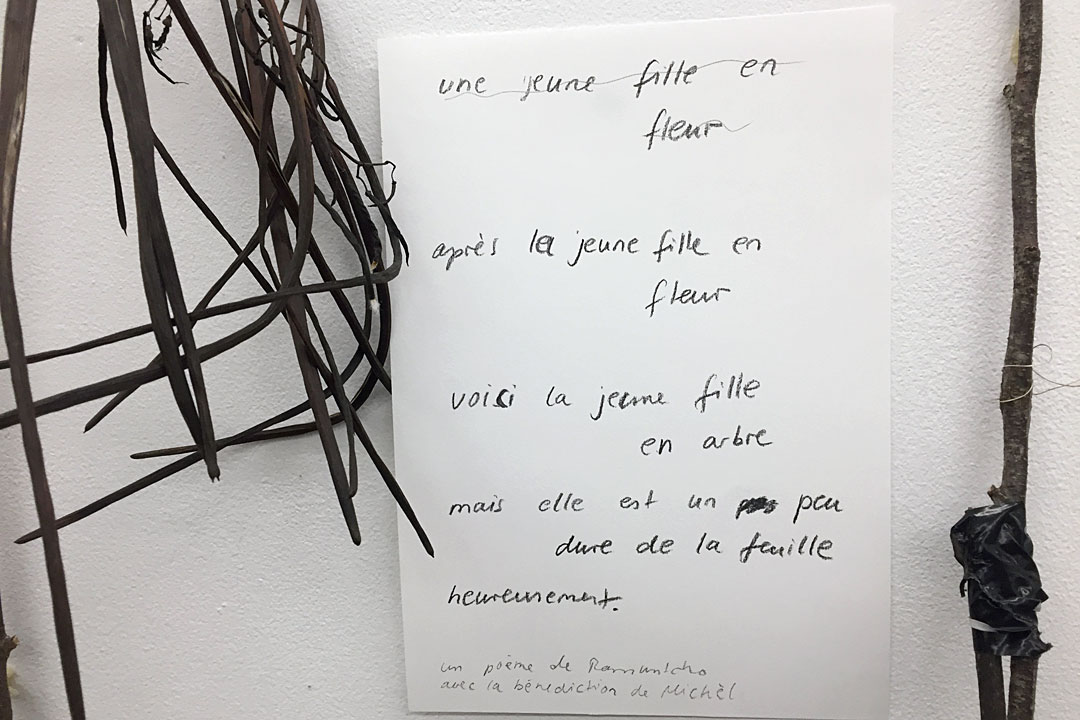 une jeune fille en
fleur
après la jeune fille en
fleur
voici la jeune fille
en arbre
mais elle est un peu
dure de la feuille
heureusement.
un poème de Ramuntcho
avec la bénediction de Michèl